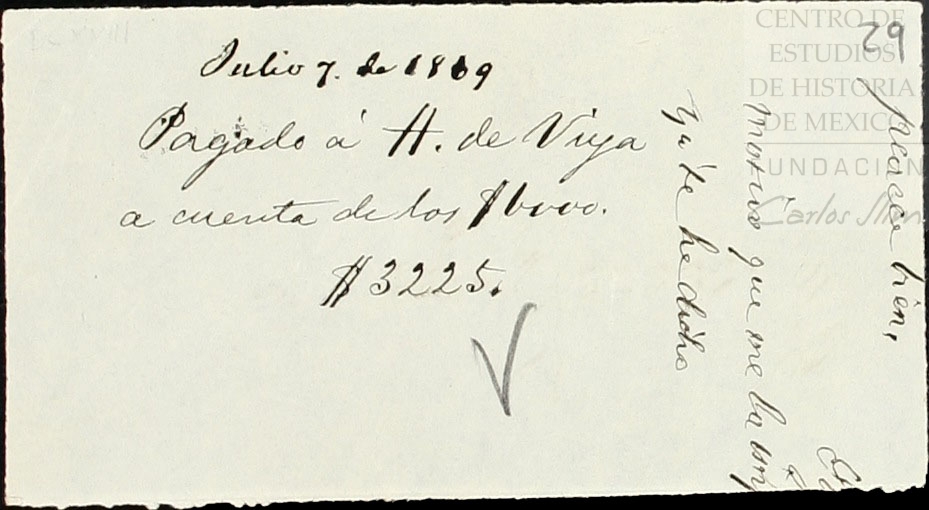 Julio 7. de 1869
Pagado á H. de Viya
a cuenta de los $6000.
$3225.
29
parece bien,
motivo que me ha
Ya te he dicho
CENTRO DE
ESTUDIOS
DE HISTORIA
DE MEXICO
FUNDACIÓN
Carlos Slim